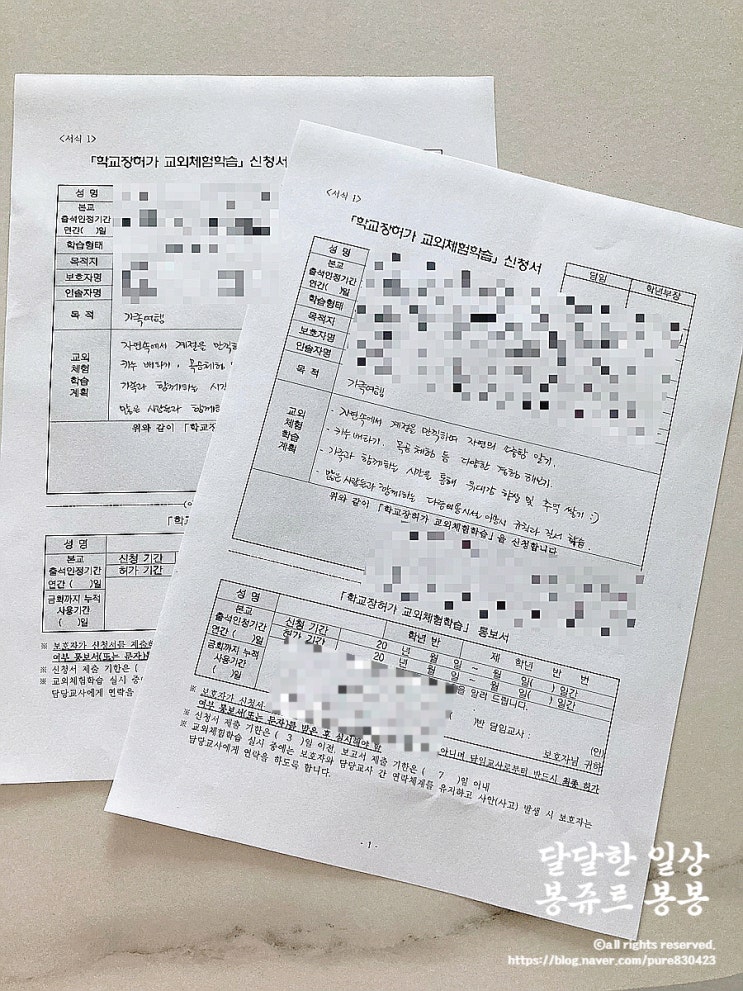 <서식 1>
「학교장허가 교외체험학습」 신청서
성 명
본교
출석인정기간
연간( )일
학습형태
목적지
보호자명
인솔자명
목 적
가족여행
교외
체험
학습
계획
자연속에서 계절을 만끽하
키수 배타기, 목공체험
가족과 함께하는 시간
많은 사람들과 함께하
위와 같이 「학교장
「학교
성 명
본교
출석인정기간
연간 ( )일
신청 기간
허가 기간
금회까지 누적
사용기간
( )일
※ 보호자가 신청서를 제출하
여부 통보서(또는 문자)를
※ 신청서 제출 기한은 (
※ 교외체험학습 실시 중에
담당교사에게 연락을
<서식 1>
「학교장허가 교외체험학습」 신청서
담임
학년부장
성 명
본교
출석인정기간
연간( )일
학습형태
목적지
보호자명
인솔자명
목 적
가족여행
교외
체험
학습
계획
· 자연속에서 계절을 만끽하며 자연의 소중함 알기.
· 키수 배타기, 목공체험 등 다양한 경험 해보기.
· 가족과 함께하는 시간을 통해 유대감 향상 및 추억 쌓기 :)
· 많은 사람들과 함께하는 다중이용시설 이용시 규칙과 질서 학습.
위와 같이 「학교장허가 교외체험학습」을 신청합니다.
「학교장허가 교외체험학습」 통보서
성 명
학년 반
제 학년 반 번
본교
출석인정기간
연간 ( )일
신청 기간
20 년 월 일 ~ 월 일( ) 일간
허가 기간
20 년 월 일 ~ 월 일( ) 일간
금회까지 누적
사용기간
( )일
을 알려 드립니다.
( )반 담임교사 : (인)
보호자님 귀하
※ 보호자가 신청서
아니며 담임교사로부터 반드시 최종 허가
여부 통보서(또는 문자)를 받은 후 실시해야 함
※ 신청서 제출 기한은 ( 3 )일 이전 보고서 제출 기한은 ( 7 )일 이내
※ 교외체험학습 실시 중에는 보호자와 담당교사 간 연락체계를 유지하고 사안(사고) 발생 시 보호자는
담당교사에게 연락을 하도록 합니다.
- 1 -
달달한 일상
봉쥬르 봉봉
©all rights reserved.
https://blog.naver.com/pure830423